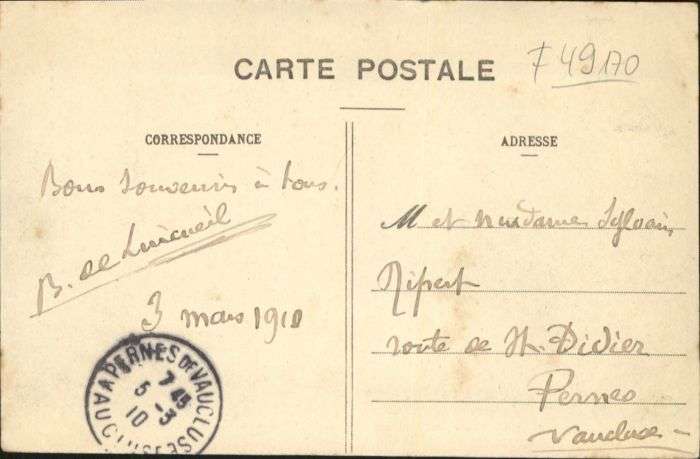 CARTE POSTALE
F 49170
CORRESPONDANCE
Bons souvenirs à tous.
B. de
3 mars 1910
ADRESSE
M et Madame Sylvain
Ripert
route de St. Didier
Pernes
Vaucluse
PERNES DE VAUCLUSE
7 45
5 -3
10
VAUCLUSE